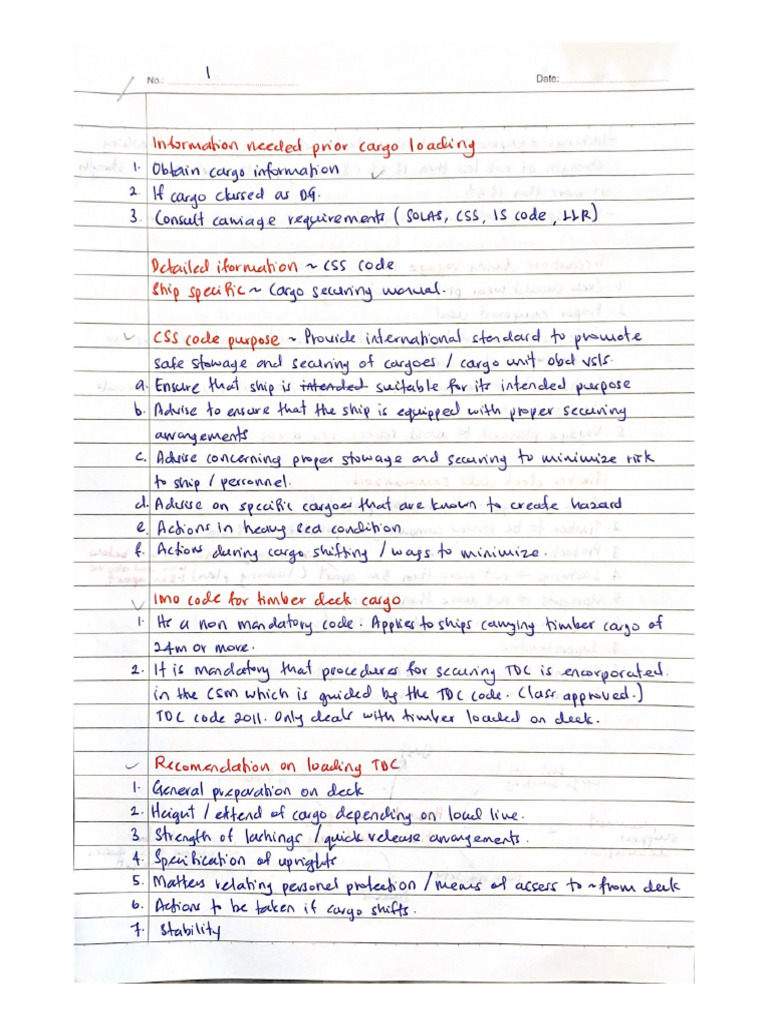 No.: 1 Date:
Information needed prior cargo loading
1. Obtain cargo information
2. If cargo classed as DG.
3. Consult carriage requirements ( SOLAS, CSS, IS code , LLR)
Detailed iformation ~ CSS code
Ship specific ~ Cargo securing manual.
CSS code purpose ~ Provide international standard to promote
safe stowage and securing of cargoes / cargo unit obd vsls.
a. Ensure that ship is intended suitable for its intended purpose
b. Advise to ensure that the ship is equipped with proper securing
arrangements
c. Advise concerning proper stowage and securing to minimize risk
to ship / personnel.
d. Advise on specific cargoes that are known to create hazard
e. Actions in heavy sea condition
f. Actions during cargo shifting / ways to minimize.
Imo code for timber deck cargo
1. Its a non mandatory code. Applies to ships carrying timber cargo of
24m or more.
2. It is mandatory that procedures for securing TDC is encorporated.
in the CSM which is guided by the TDC code. (class approved.)
TDC code 2011. Only deals with timber loaded on deck.
Recomendation on loading TDC
1. General preparation on deck
2. Height / extend of cargo depending on load line.
3. Strength of lashings / quick release arrangements.
4. Specification of uprights
5. Matters relating personal protection / means of access to ~ from deck
6. Actions to be taken if cargo shifts.
7. Stability